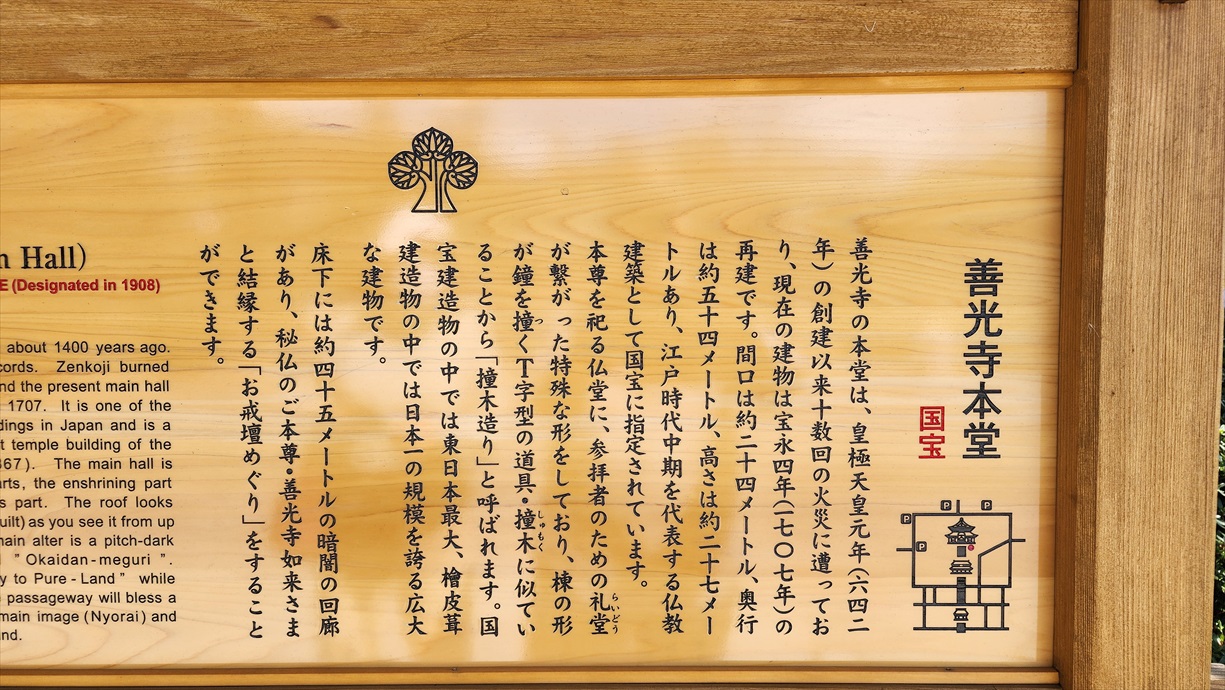 善光寺本堂
国宝
善光寺の本堂は、皇極天皇元年(六四二
年)の創建以来十数回の火災に遭ってお
り、現在の建物は宝永四年(一七〇七年)の
再建です。間口は約二十四メートル、奥行
は約五十四メートル、高さは約二十七メー
トルあり、江戸時代中期を代表する仏教
建築として国宝に指定されています。
本尊を祀る仏堂に、参拝者のための礼堂
らいどう
が繋がった特殊な形をしており、棟の形
が鐘を撞くT字型の道具・撞木に似てい
つ
しゅもく
ることから「撞木造り」と呼ばれます。国
宝建造物の中では東日本最大、檜皮葺
建造物の中では日本一の規模を誇る広大
な建物です。
床下には約四十五メートルの暗闇の回廊
があり、秘仏のご本尊・善光寺如来さま
と結縁する「お戒壇めぐり」をすること
ができます。
P
P
P
P
Hall)
(Designated in 1908)
about 1400 years ago.
Zenkoji burned
the present main hall
1707. It is one of the
in Japan and is a
temple building of the
The main hall is
the enshrining part
part. The roof looks
as you see it from up
alter is a pitch-dark
"Okaidan-meguri".
to Pure-Land" while
passageway will bless a
main image (Nyorai) and